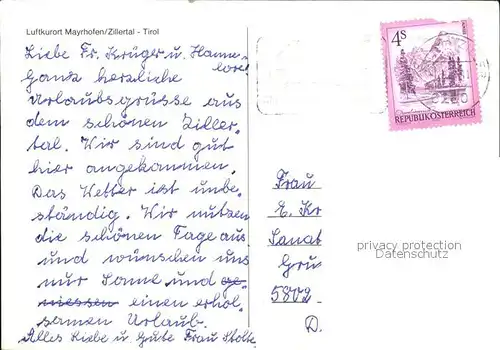 Luftkurort Mayrhofen/Zillertal - Tirol
Liebe Fr. Krüger u. Hanne-
lore!
Ganz herzliche
Urlaubsgrüsse aus
dem schönen Ziller-
tal. Wir sind gut
hier angekommen.
Das Wetter ist unbe-
ständig. Wir nutzen
die schönen Tage aus
und wünschen uns
nur Sonne und ge-
niessen einen erhol-
samen Urlaub.
Alles Liebe u. Gute Frau Stolte
4S
REPUBLIK ÖSTERREICH
Frau
E. Kr
Sanat
Gru
5802
D.
privacy protection
Datenschutz